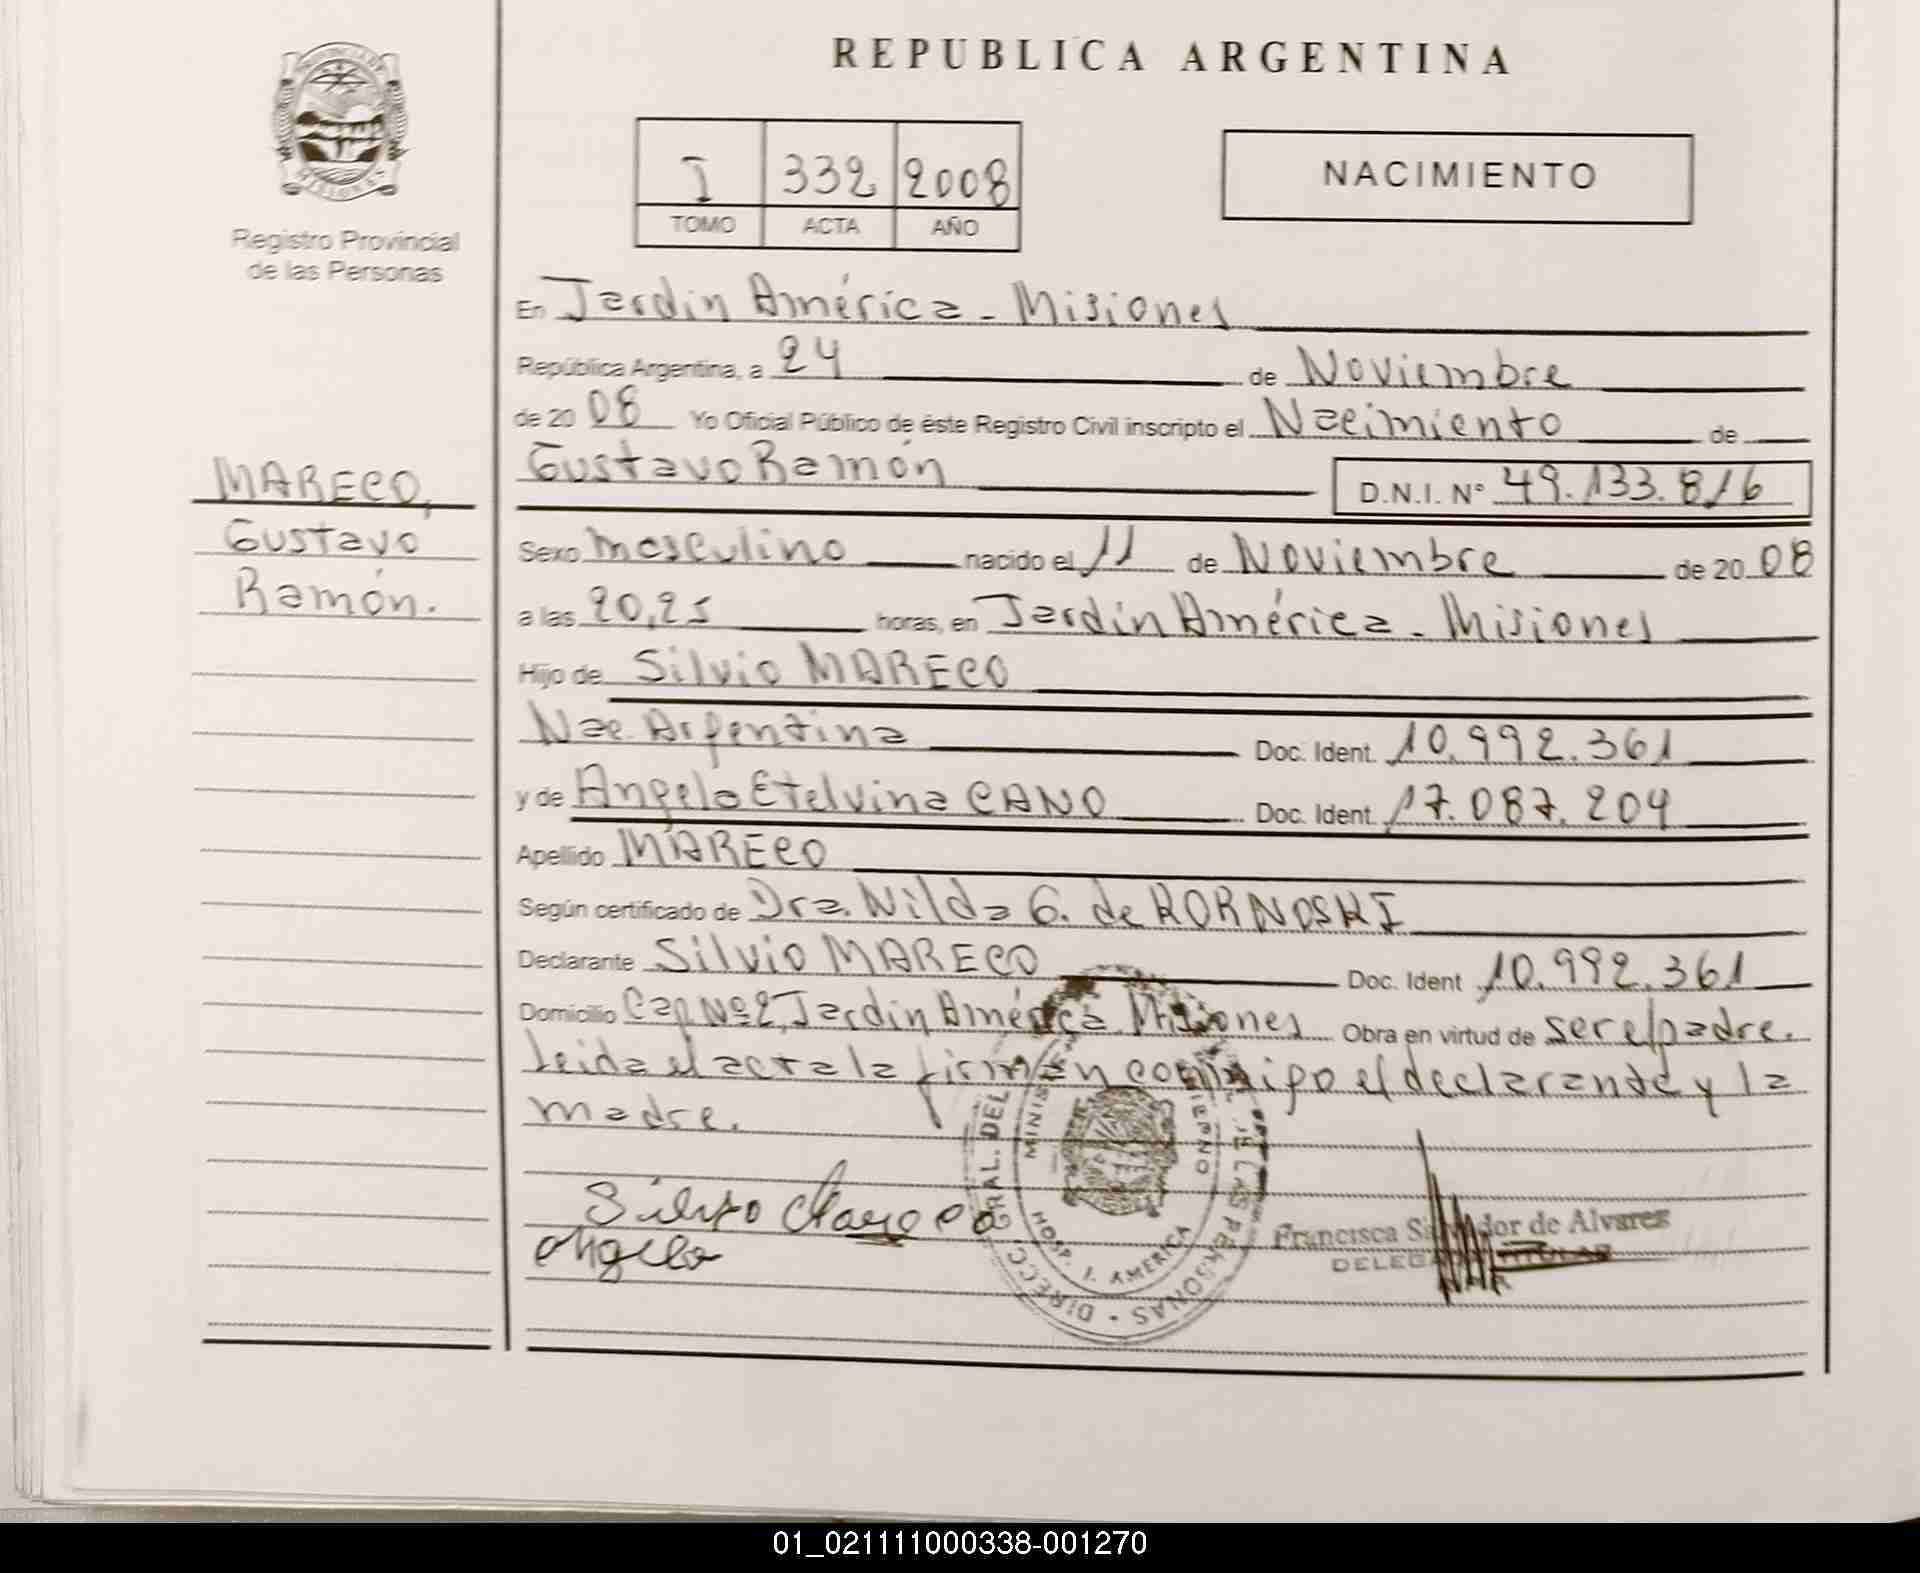 REPUBLICA ARGENTINA
PROVINCIA DE
MISIONES
Registro Provincial
de las Personas
I 332 2008
TOMO ACTA AÑO
NACIMIENTO
En Jardín América - Misiones
República Argentina, a 24 de Noviembre
de 20 08 Yo Oficial Público de éste Registro Civil inscripto el Nacimiento de
Gustavo Ramón D.N.I. N° 49.133.816
MARECO,
Gustavo
Ramón.
Sexo masculino nacido el 11 de Noviembre de 20 08
a las 20,25 horas, en Jardín América - Misiones
Hijo de Silvio MARECO
Nac. Argentina Doc. Ident. 10.992.361
y de Angela Etelvina CANO Doc. Ident. 17.087.204
Apellido MARECO
Según certificado de Dra. Nilda G. de KORNOSKI
Declarante Silvio MARECO Doc. Ident 10.992.361
Domicilio Cap. Nº2, Jardín América. Misiones Obra en virtud de ser el padre.
Leida el acta la firman conmigo el declarante y la
madre.
Silvio Mareco
Angela
DIRECC. GRAL. DEL PERSONAS
HOSP. J. AMERICA
Francisca Salvador de Alvarez
DELEGADA TITULAR
01_021111000338-001270